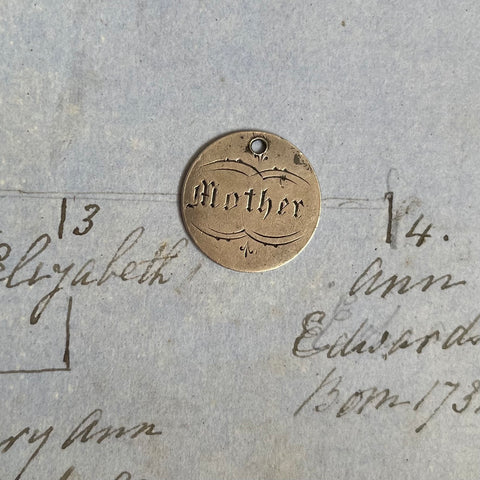 Mother
13
14.
Elizabeth
Ann
Edwards
Born 173
ry Ann